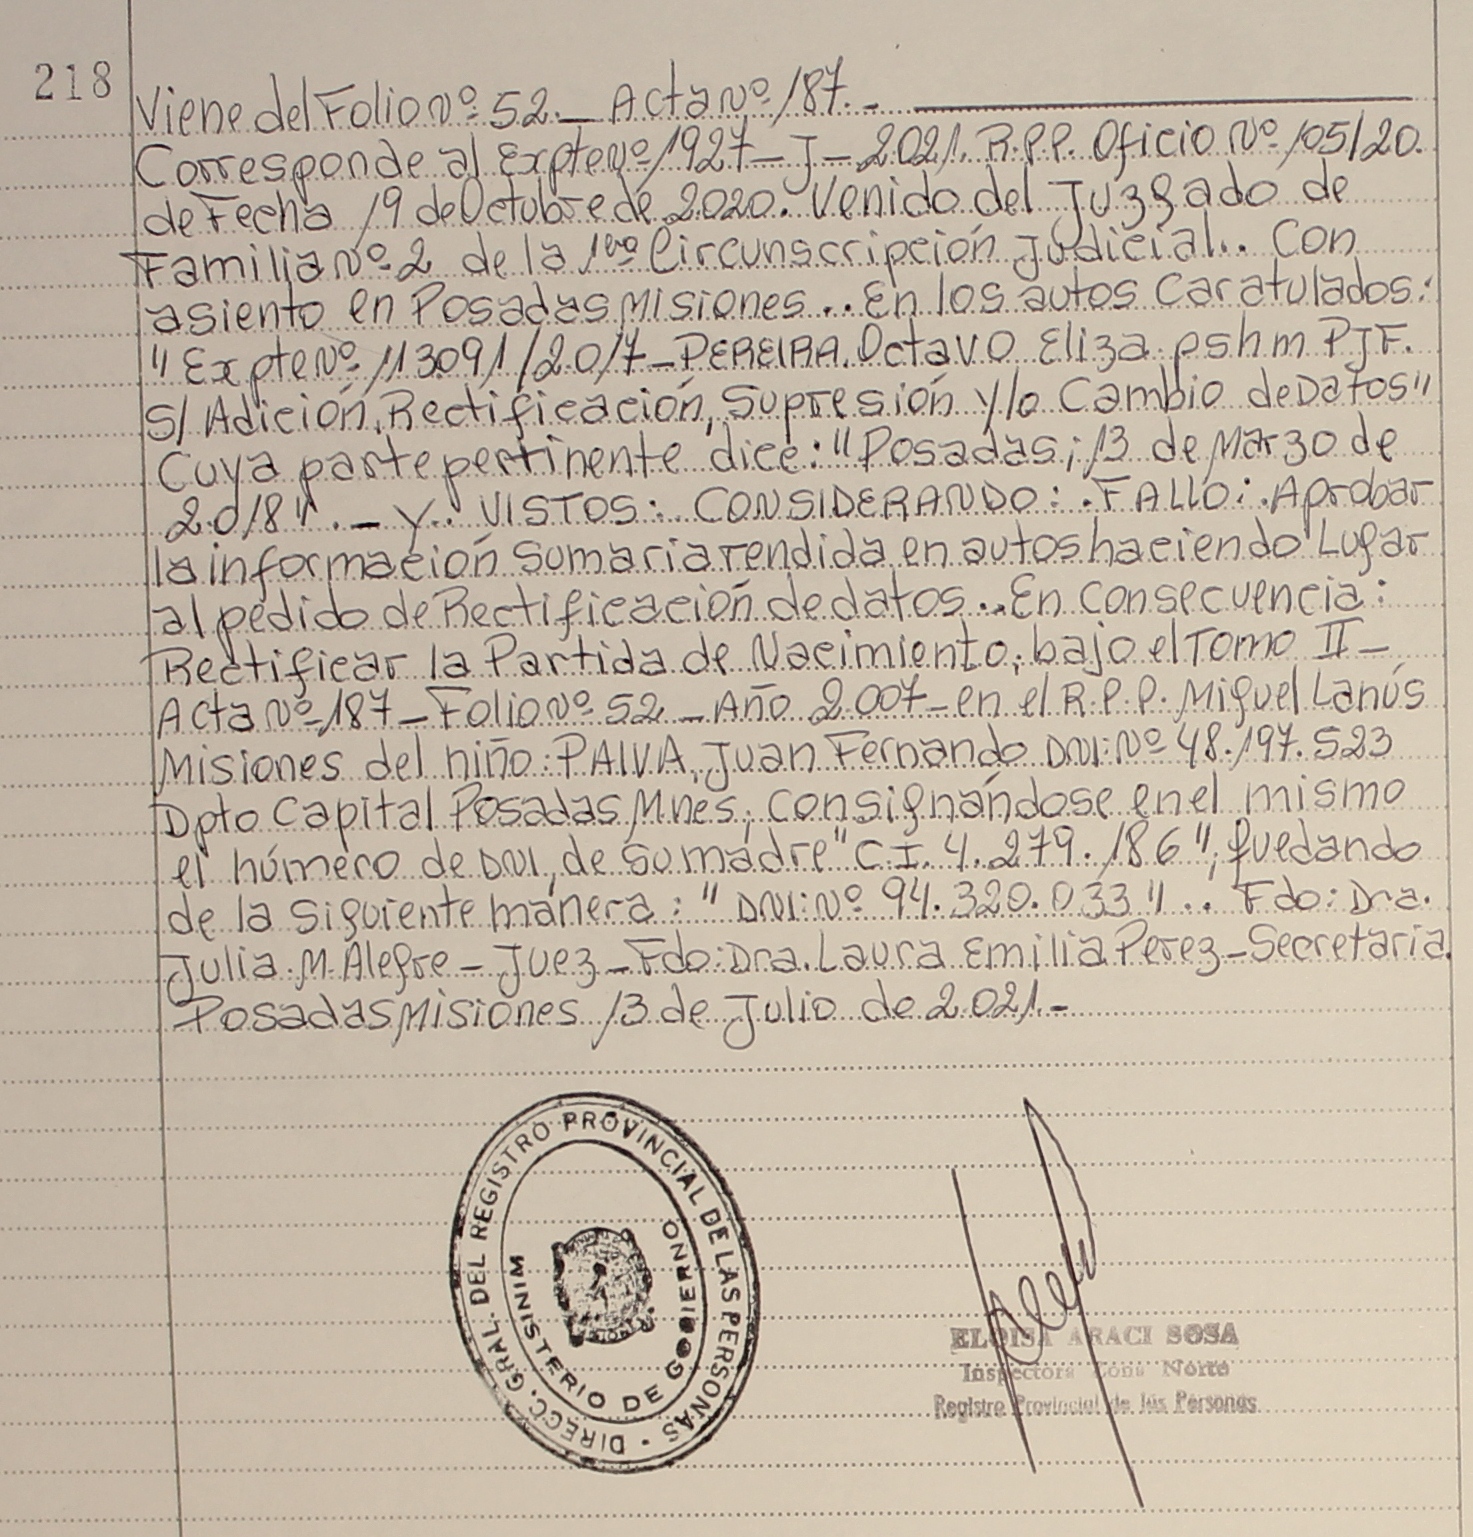 218
Viene del Folio Nº 52._ Acta Nº 187.-
Corresponde al Expte Nº 1927_J_2021. R.P.P. Oficio Nº 105/20.
de Fecha 19 de Octubre de 2020. Venido del Juzgado de
Familia Nº 2 de la 1era Circunscripción Judicial.. Con
asiento en Posadas Misiones.. En los autos Caratulados:
"Expte Nº 113091/2017_PEREIRA. Octavo Eliza pshm PJF.
S/ Adición, Rectificación, Supresión y/o Cambio de Datos"
Cuya parte pertinente dice: "Posadas; 13 de Marzo de
2018"._ Y. VISTOS: CONSIDERANDO: FALLO: Aprobar
la información Sumaria rendida en autos haciendo Lugar
al pedido de Rectificación de datos.. En Consecuencia:
Rectificar la Partida de Nacimiento, bajo el Tomo II_
Acta Nº 187_Folio Nº 52_Año 2007_en el R.P.P. Miguel Lanús
Misiones del niño: PAIVA, Juan Fernando DNI: Nº 48.197.523
Dpto Capital Posadas Mnes; Consignándose en el mismo
el número de DNI, de su madre "C.I. 4.279.186"; quedando
de la siguiente manera: "DNI: Nº 94.320.033".. Fdo: Dra.
Julia M. Alegre_Juez_Fdo: Dra. Laura Emilia Perez_Secretaria.
Posadas Misiones 13 de Julio de 2021.-
DIRECC. GRAL. DEL REGISTRO PROVINCIAL DE LAS PERSONAS
MINISTERIO DE GOBIERNO
ELOISA ARACI SOSA
Inspectora Zona Norte
Registro Provincial de las Personas